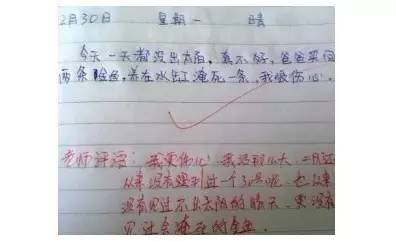 2月30日 星期一 晴
今天一天都没出太阳，真不好，爸爸买回
两条金鱼，养在水缸淹死一条，我很伤心。
老师评语：我更伤心！我活那么大，二月还
从来没有遇到过一个30号呢，也从来
没有见过不出太阳的晴天，更没有
见过会淹死的金鱼